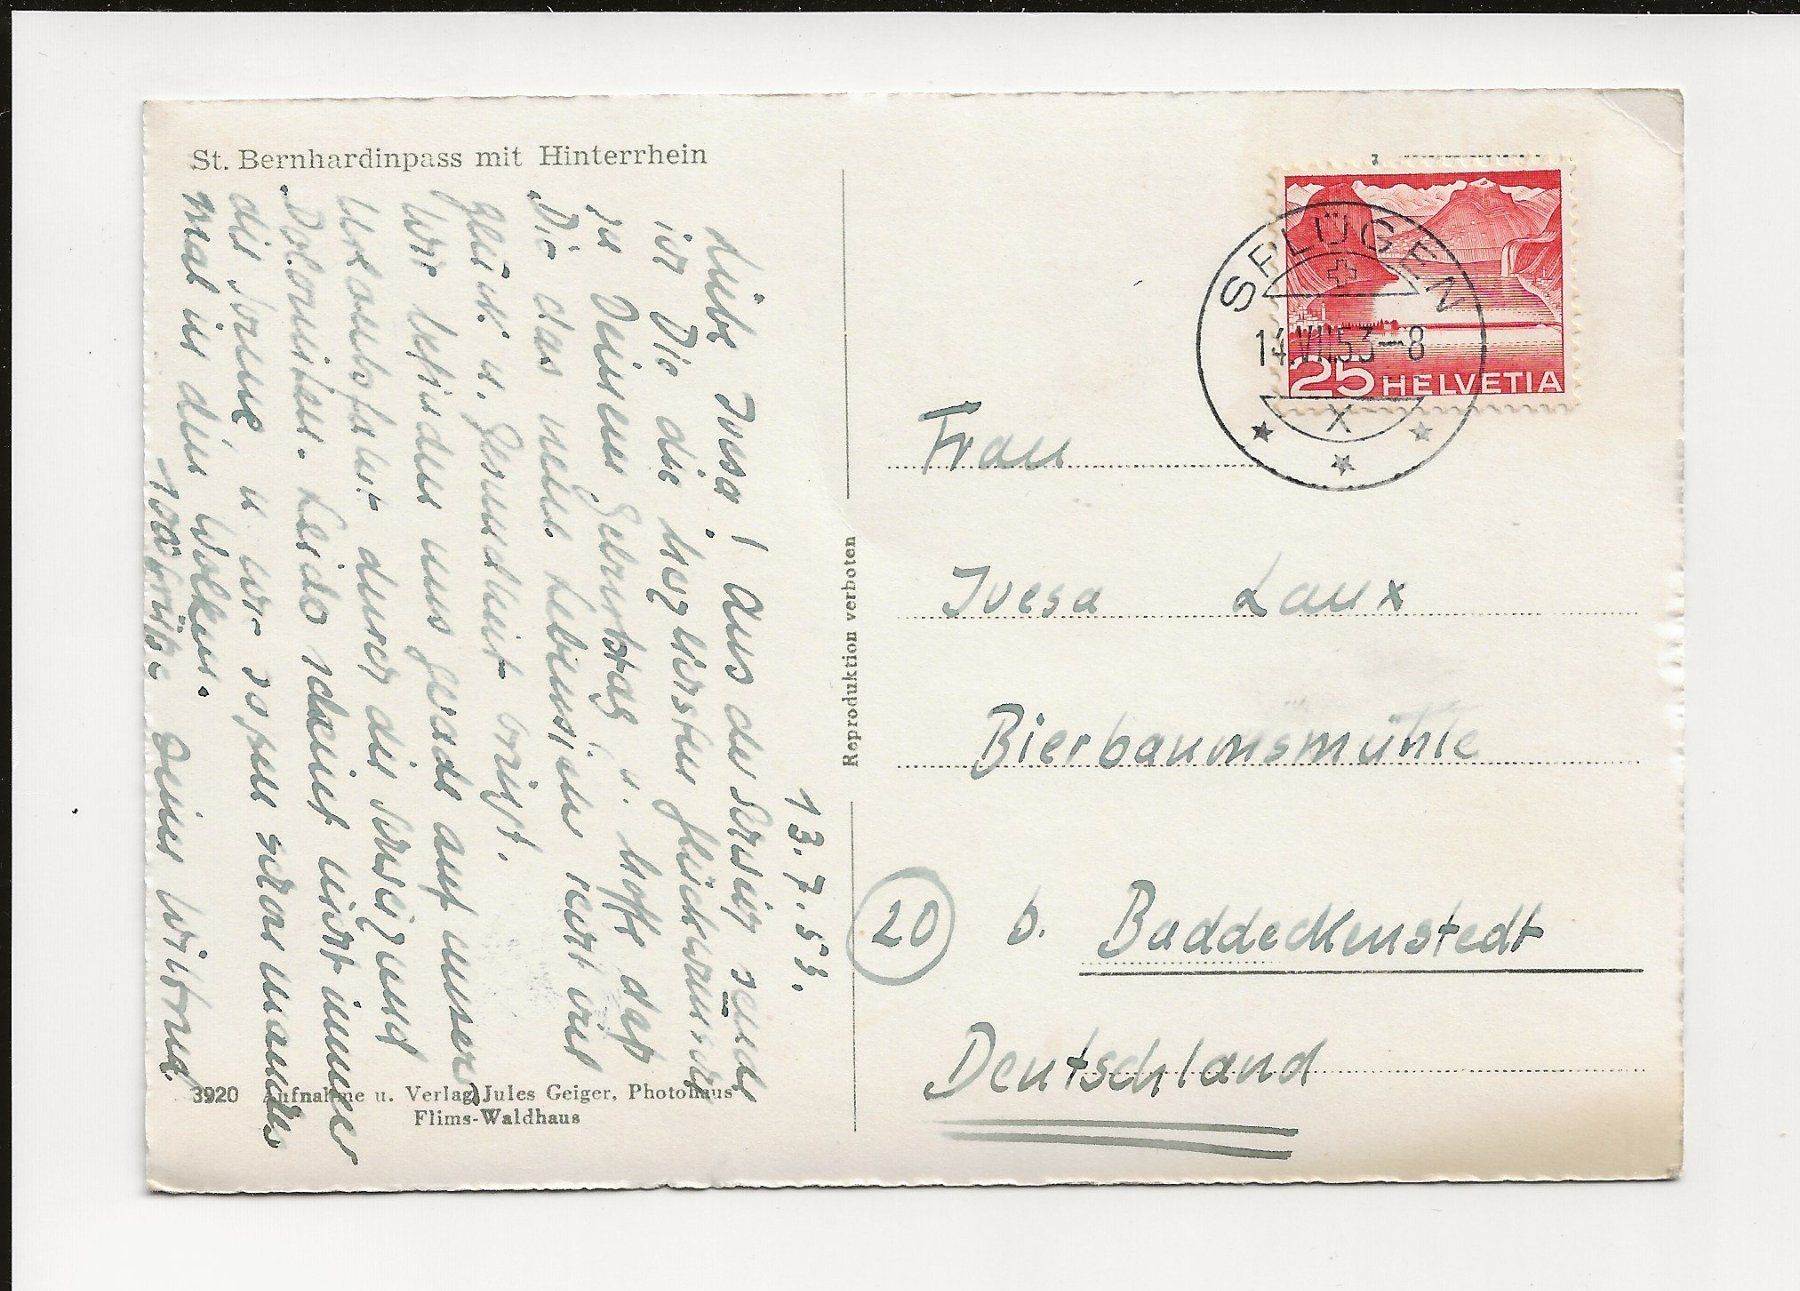 St. Bernhardinpass mit Hinterrhein
13. 7. 53.
Liebe Ivesa! Aus der Schweiz sende
ich Dir die herzlichsten Glückwünsche
zu Deinem Geburtstag u. hoffe daß
Dir das neue Lebensjahr recht viel
Glück u. Gesundheit bringt.
Wir befinden uns gerade auf unserer
Urlaubsfahrt durch die Schweiz und
Dolomiten. Leider scheint nicht immer
die Sonne u. wir sassen schon manches
mal in den Wolken.
100 Grüße Deine
3920 Aufnahme u. Verlag Jules Geiger, Photohaus
Flims-Waldhaus
Reproduktion verboten
SPLÜGEN
14.VII.53-8
X
25 HELVETIA
Frau
Ivesa Laux
Bierbaumsmühle
20 b. Baddeckenstedt
Deutschland